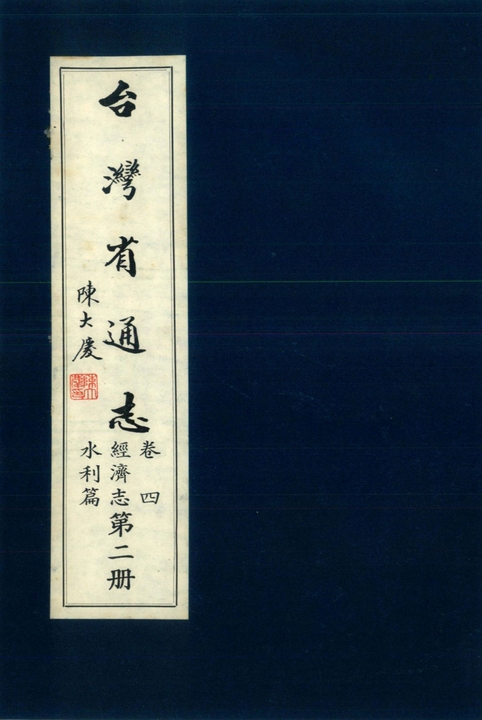 台灣省通志
卷四
經濟志第二册
水利篇
陳大慶